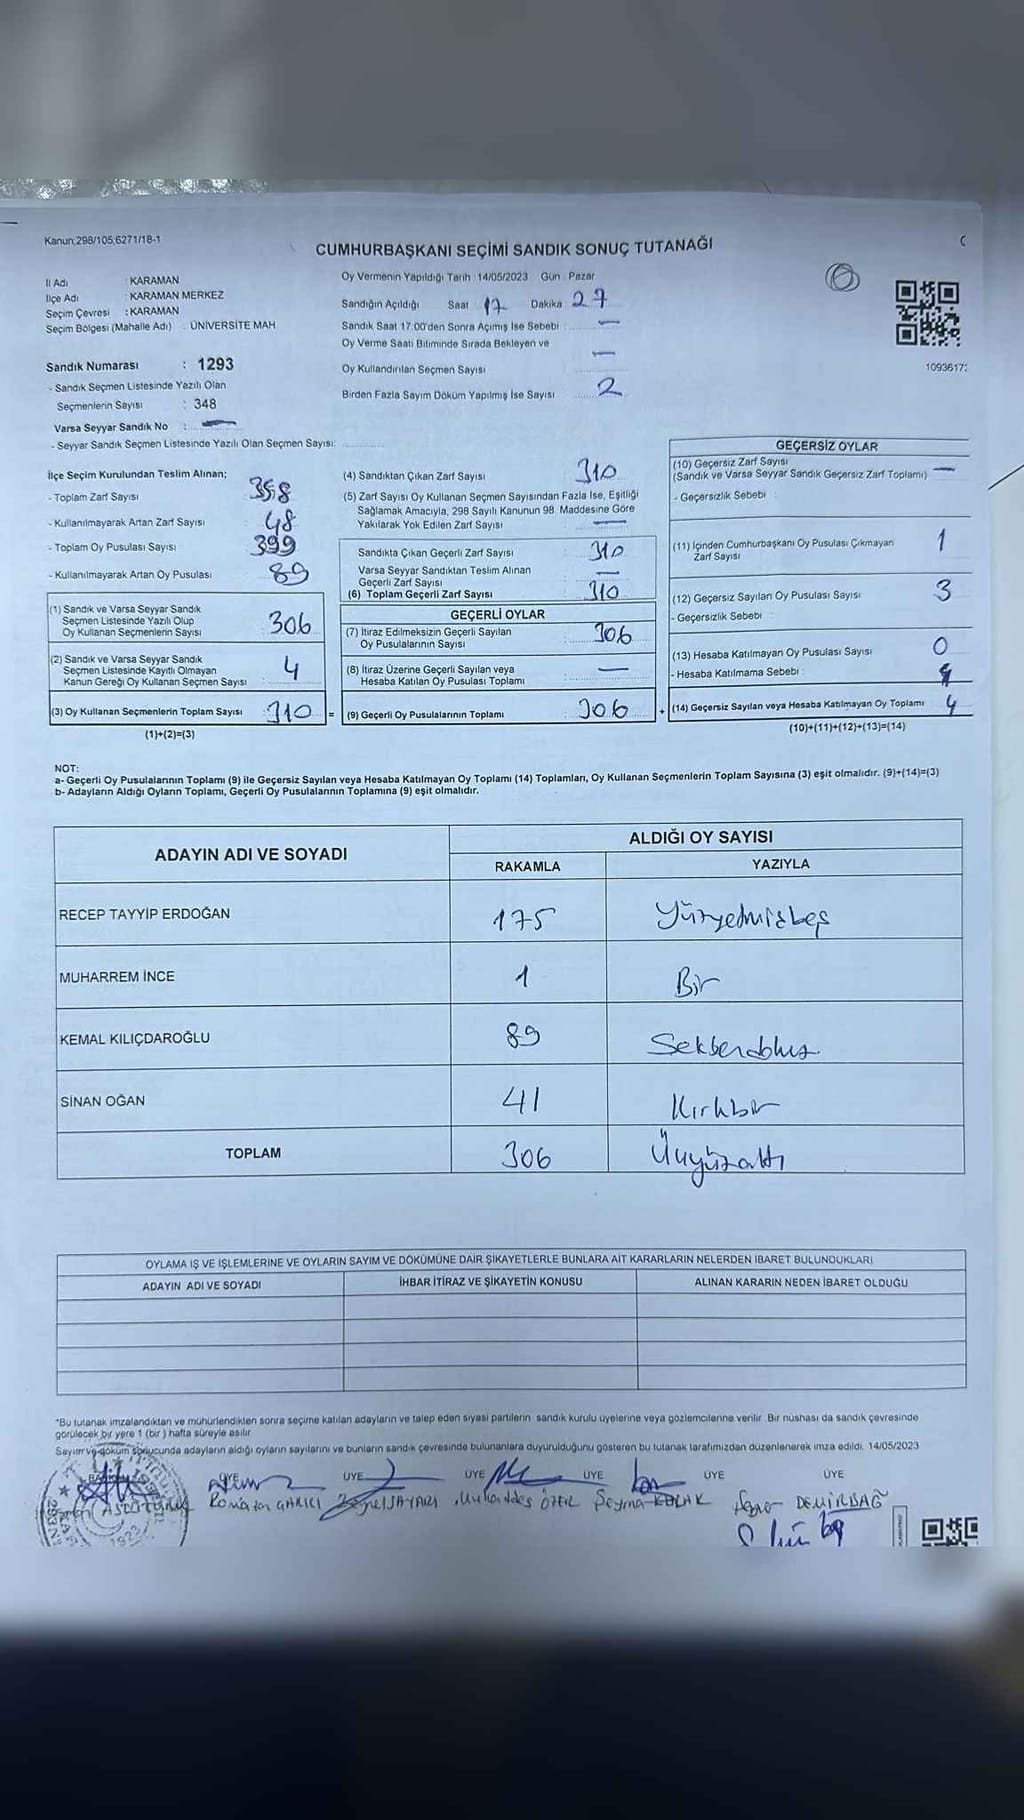 Kanun:298/105,6271/18-1
CUMHURBAŞKANI SEÇİMİ SANDIK SONUÇ TUTANAĞI
İl Adı : KARAMAN
İlçe Adı : KARAMAN MERKEZ
Seçim Çevresi : KARAMAN
Seçim Bölgesi (Mahalle Adı) : ÜNİVERSİTE MAH
Sandık Numarası : 1293
- Sandık Seçmen Listesinde Yazılı Olan
Seçmenlerin Sayısı : 348
Varsa Seyyar Sandık No : —
- Seyyar Sandık Seçmen Listesinde Yazılı Olan Seçmen Sayısı:
Oy Vermenin Yapıldığı Tarih : 14/05/2023 Gün : Pazar
Sandığın Açıldığı Saat 17 Dakika 27
Sandık Saat 17:00'den Sonra Açımış İse Sebebi : —
Oy Verme Saati Bitiminde Sırada Bekleyen ve
Oy Kullandırılan Seçmen Sayısı —
Birden Fazla Sayım Döküm Yapılmış İse Sayısı 2
1093617
İlçe Seçim Kurulundan Teslim Alınan;
- Toplam Zarf Sayısı 358
- Kullanılmayarak Artan Zarf Sayısı 48
- Toplam Oy Pusulası Sayısı 399
- Kullanılmayarak Artan Oy Pusulası 89
(1) Sandık ve Varsa Seyyar Sandık
Seçmen Listesinde Yazılı Olup
Oy Kullanan Seçmenlerin Sayısı 306
(2) Sandık ve Varsa Seyyar Sandık
Seçmen Listesinde Kayıtlı Olmayan
Kanun Gereği Oy Kullanan Seçmen Sayısı 4
(3) Oy Kullanan Seçmenlerin Toplam Sayısı 310 =
(1)+(2)=(3)
(4) Sandıktan Çıkan Zarf Sayısı 310
(5) Zarf Sayısı Oy Kullanan Seçmen Sayısından Fazla İse, Eşitliği
Sağlamak Amacıyla, 298 Sayılı Kanunun 98. Maddesine Göre
Yakılarak Yok Edilen Zarf Sayısı —
Sandıkta Çıkan Geçerli Zarf Sayısı 310
Varsa Seyyar Sandıktan Teslim Alınan
Geçerli Zarf Sayısı —
(6) Toplam Geçerli Zarf Sayısı 310
GEÇERLİ OYLAR
(7) İtiraz Edilmeksizin Geçerli Sayılan
Oy Pusulalarının Sayısı 306
(8) İtiraz Üzerine Geçerli Sayılan veya
Hesaba Katılan Oy Pusulası Toplamı —
(9) Geçerli Oy Pusulalarının Toplamı 306 +
GEÇERSİZ OYLAR
(10) Geçersiz Zarf Sayısı
(Sandık ve Varsa Seyyar Sandık Geçersiz Zarf Toplamı) —
- Geçersizlik Sebebi
(11) İçinden Cumhurbaşkanı Oy Pusulası Çıkmayan
Zarf Sayısı 1
(12) Geçersiz Sayılan Oy Pusulası Sayısı 3
- Geçersizlik Sebebi
(13) Hesaba Katılmayan Oy Pusulası Sayısı 0
- Hesaba Katılmama Sebebi :
(14) Geçersiz Sayılan veya Hesaba Katılmayan Oy Toplamı 4
(10)+(11)+(12)+(13)=(14)
NOT:
a- Geçerli Oy Pusulalarının Toplamı (9) ile Geçersiz Sayılan veya Hesaba Katılmayan Oy Toplamı (14) Toplamları, Oy Kullanan Seçmenlerin Toplam Sayısına (3) eşit olmalıdır. (9)+(14)=(3)
b- Adayların Aldığı Oyların Toplamı, Geçerli Oy Pusulalarının Toplamına (9) eşit olmalıdır.
ADAYIN ADI VE SOYADI ALDIĞI OY SAYISI
RAKAMLA YAZIYLA
RECEP TAYYİP ERDOĞAN 175 Yüzyetmişbeş
MUHARREM İNCE 1 Bir
KEMAL KILIÇDAROĞLU 89 Seksendokuz
SİNAN OĞAN 41 Kırkbir
TOPLAM 306 Üçyüzaltı
OYLAMA İŞ VE İŞLEMLERİNE VE OYLARIN SAYIM VE DÖKÜMÜNE DAİR ŞİKAYETLERLE BUNLARA AİT KARARLARIN NELERDEN İBARET BULUNDUKLARI
ADAYIN ADI VE SOYADI İHBAR İTİRAZ VE ŞİKAYETİN KONUSU ALINAN KARARIN NEDEN İBARET OLDUĞU
*Bu tutanak imzalandıktan ve mühürlendikten sonra seçime katılan adayların ve talep eden siyasi partilerin sandık kurulu üyelerine veya gözlemcilerine verilir. Bir nüshası da sandık çevresinde
görülecek bir yere 1 (bir) hafta süreyle asılır.
Sayım ve döküm sonucunda adayların aldığı oyların sayılarını ve bunların sandık çevresinde bulunanlara duyurulduğunu gösteren bu tutanak tarafımızdan düzenlenerek imza edildi. 14/05/2023
ÜYE ÜYE ÜYE ÜYE ÜYE ÜYE
Ramazan ÖZER Şeyma DEMİRBAĞ